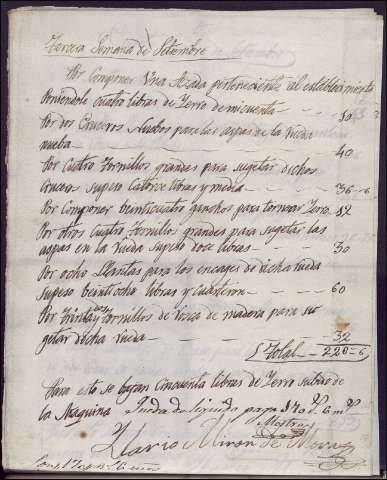 Tercera Semana de Setiembre
Por Componer Una Azada perteneciente al establecimiento
Poniendole cuatro libras de Yerro de mi cuenta - - 30
Por dos Cruceros Nuebos para las aspas de la rueda
nueba - - - 40
Por Cuatro tornillos grandes para sugetar dichos
Cruceros Supeso Catorce libras y media - - 36-6
Por Componer beinticuatro ganchos para tornear Yerro 12
Por otros Cuatro tornillos grandes para sugetar las
aspas en la rueda Supeso doce libras - - - 30
Por ocho Llantas para los encages de dicha rueda
Supeso beintiocho libras y cuarteron - - - 60
Por treinta tornillos de rosca de madera para su
getar dicha rueda - - - 32
Total - - 220-6
Para esto se Cincuenta libras de Yerro
de la Maquina Queda de liquido pago 170 6 m
Mostroz
Ylario Miron de Mora